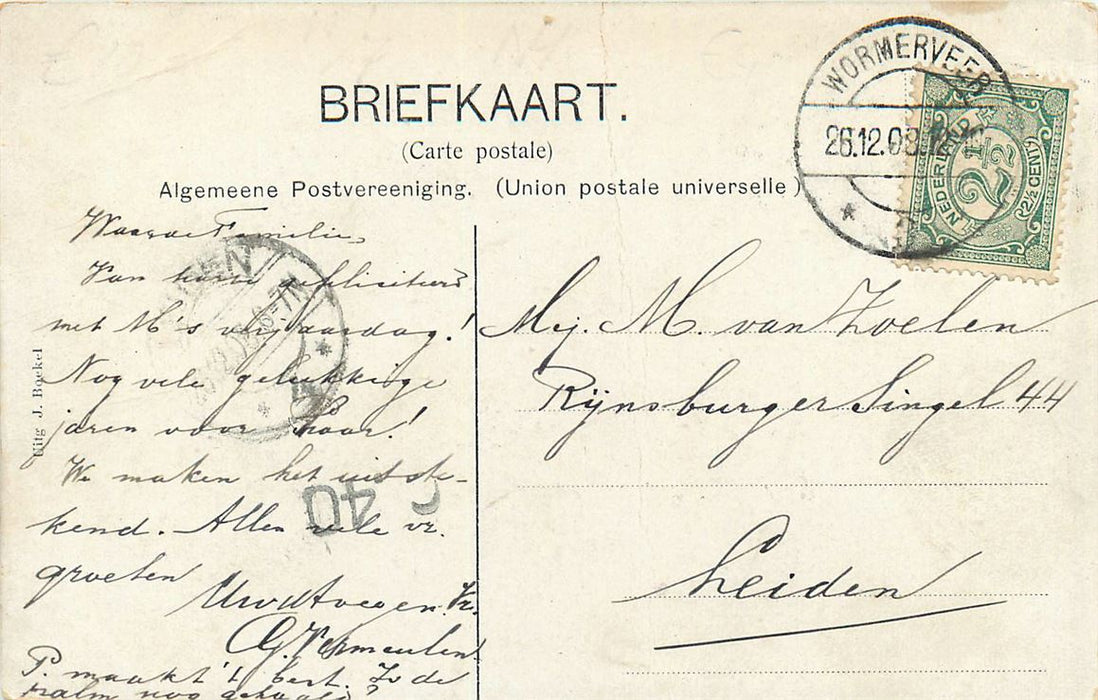 BRIEFKAART.
(Carte postale)
Algemeene Postvereeniging. (Union postale universelle)
WORMERVEER
26.12.08.
NEDERLAND
2½
(2½ CENT)
Waarde Familie,
Van harte gefeliciteerd
met M's verjaardag!
Nog vele gelukkige
jaren voor haar!
We maken het uitste-
kend. Allen vele vr.
groeten
Vr.
G. Vermeulen
P. maakt 't best. Is de
palm nog
Uitg J. Boekel
40
Mej. M. van Zoelen
Rijnsburger Singel 44
Leiden